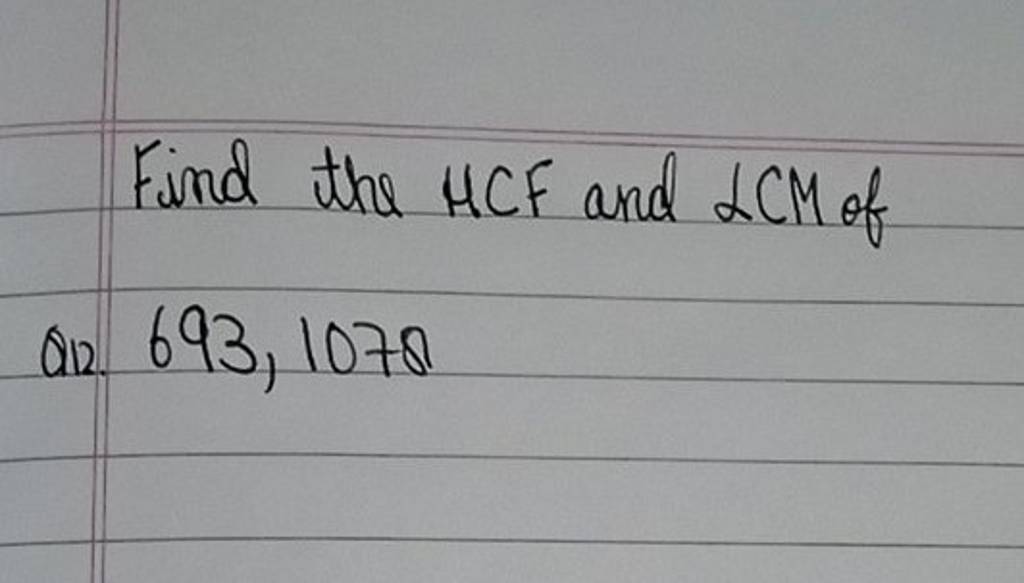 Find the HCF and LCM of
Q12. 693, 1078